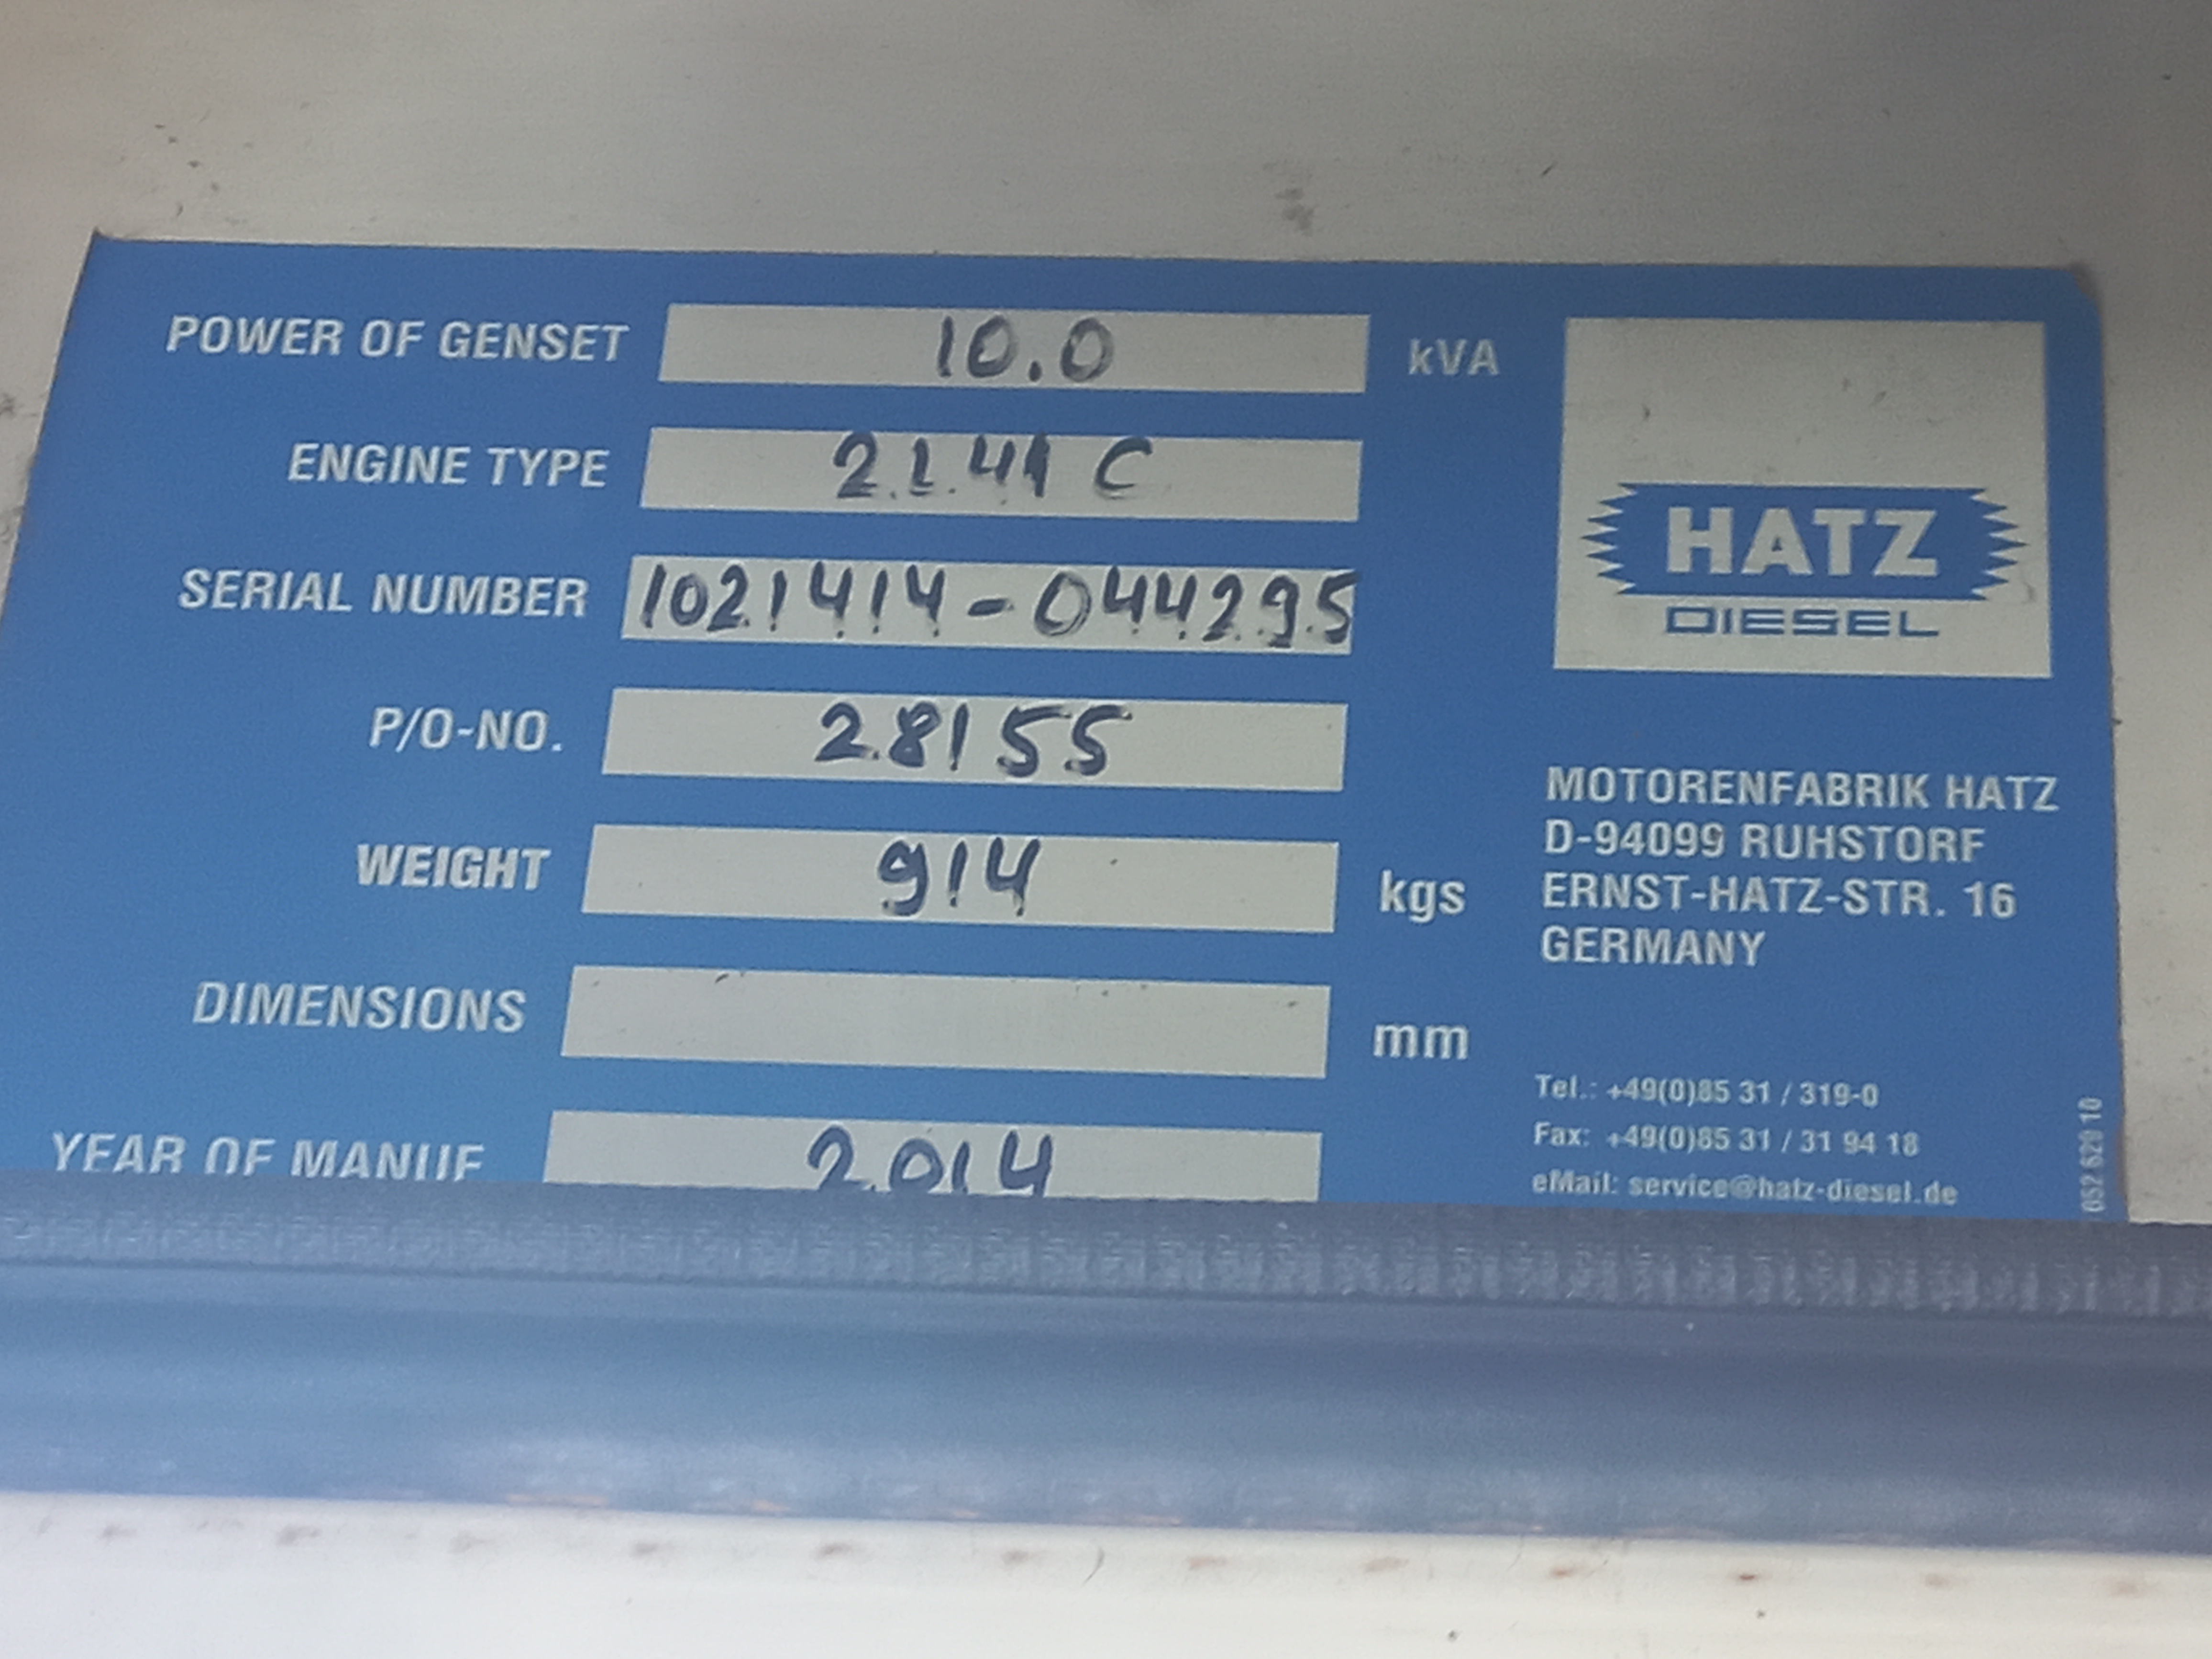 POWER OF GENSET 10.0 kVA
ENGINE TYPE 2L41C
SERIAL NUMBER 1021414-044295
P/O-NO. 28155
WEIGHT 914 kgs
DIMENSIONS mm
YEAR OF MANUF 2014
HATZ
DIESEL
MOTORENFABRIK HATZ
D-94099 RUHSTORF
ERNST-HATZ-STR. 16
GERMANY
Tel.: +49(0)85 31 / 319-0
Fax: +49(0)85 31 / 31 94 18
eMail: service@hatz-diesel.de